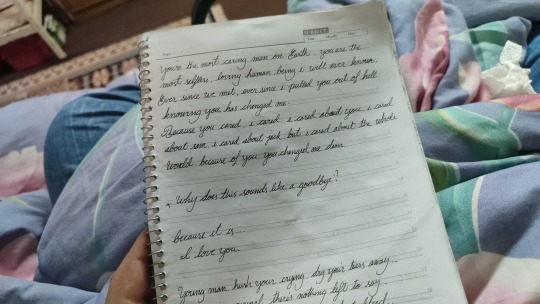 you're the most caring man on Earth. you are the
most selfless, loving human being i will ever know.
Ever since we met, ever since i pulled you out of hell
knowing you has changed me.
Because you cared i cared. i cared about you. i cared
about sam, i cared about jack but i cared about the whole
world because of you. you changed me dean.
Why does this sounds like a goodbye?
because it is...
I love you.
Young man, hush your crying, dry your tears away...
there's nothing left to say